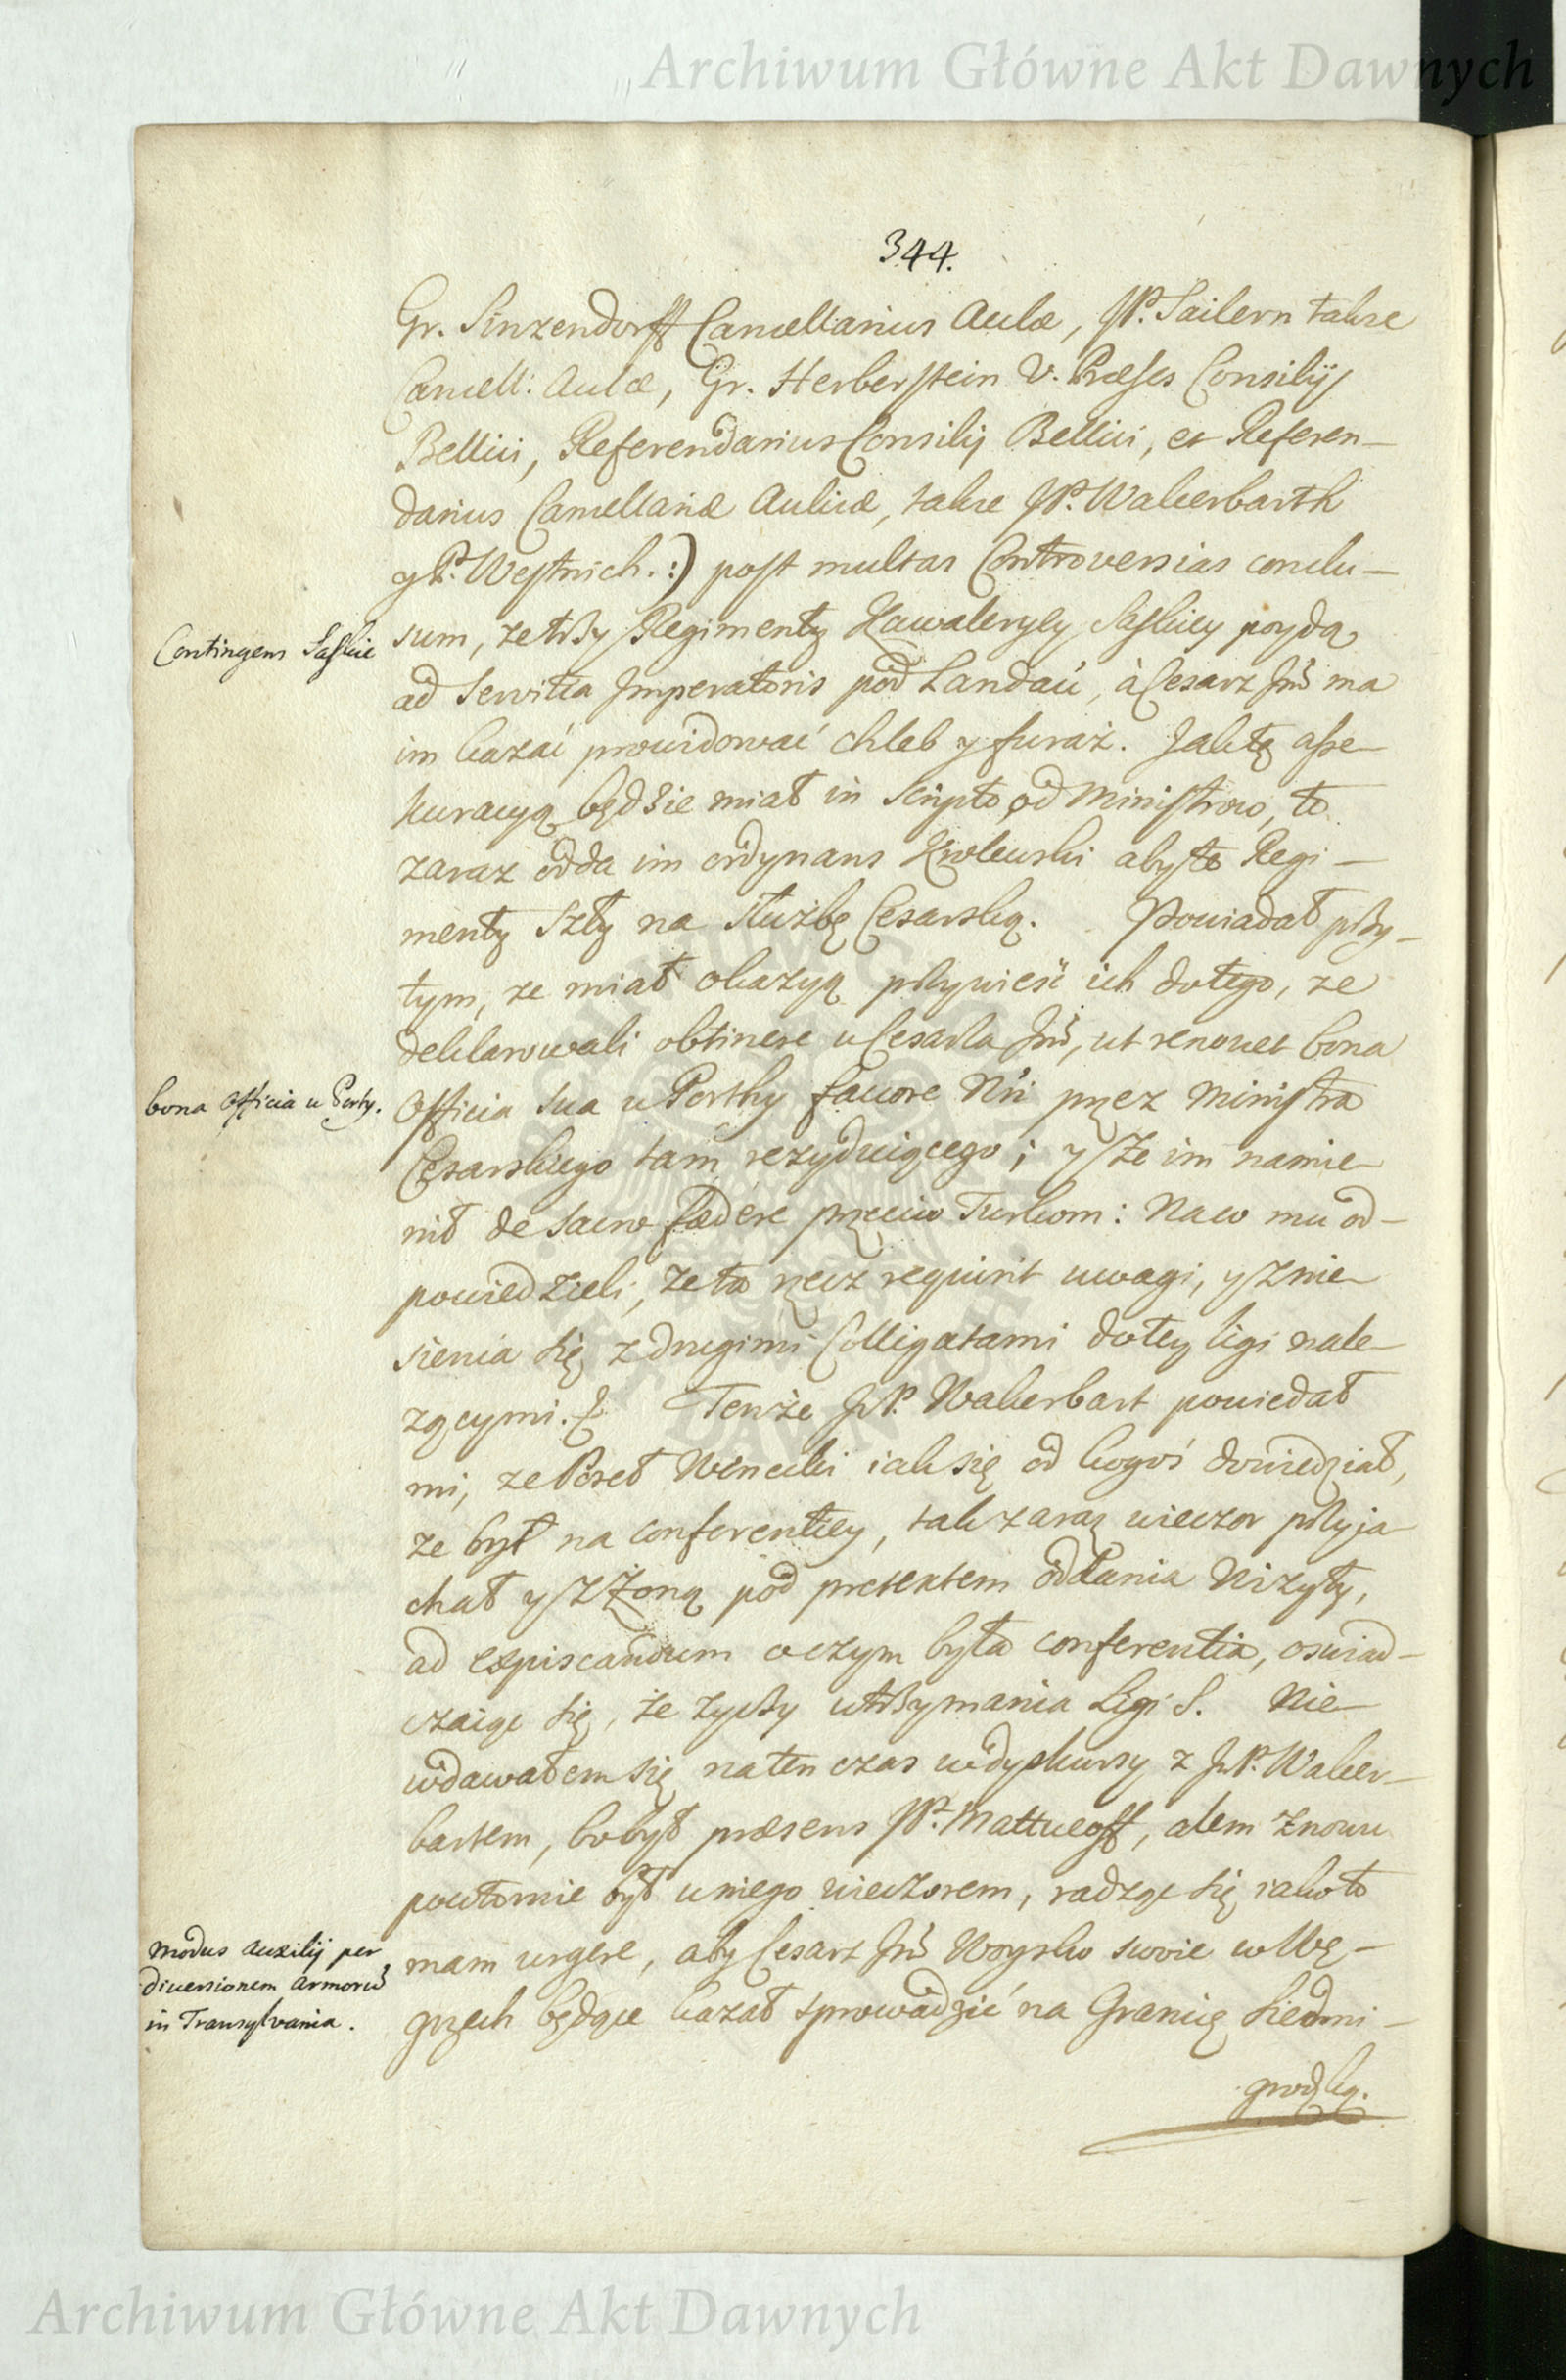 Archiwum Główne Akt Dawnych
344.
Gr. Sinzendorff Cancellarius Aulæ, JP. Sailern takze
Cancell: Aulæ, Gr. Herberstein V. Præses Consilij
Bellici, Referendarius Consilij Bellici, et Referen-
darius Cancellariæ Aulicæ, takze JP. Wakerbarth
y P. Westrich.:) post multas Controversias conclu-
Contingens Saskie
sum, ze trzy Regimenty Kawaleryey Saskiey poydą
ad Servitia Imperatoris pod Landau, à Cesarz Jmć ma
im kazać prowidować chleb y furaż. Jak tę asse-
kuracyą będzie miał in Scripto od Ministrow, to
zaraz odda im ordynans Krolewski aby te Regi-
menty szły na służbę Cesarską. Powiadał przy-
tym, ze miał okazyą przywieść ich do tego, ze
deklarowali obtinere u Cesarza Jmć, ut renovet bona
bona Officia u Porty.
Officia sua u Porthy favore Nri przez Ministra
Cesarskiego tam rezyduiącego; y że im namie-
nił de sacro fœdere przeciw Turkom: Na co mu od-
powiedzieli, że ta rzecz requirit uwagi, y znie-
sienia się z drugimi Colligatami do tey ligi nale-
zącymi. Tenże JP. Wakerbart powiedał
mi, ze Poseł Wenecki iak się od kogoś dowiedział,
ze był na conferentiey, tak zaraz wieczor przyja-
chał y z Żoną pod pretextem oddania Wizyty,
ad expiscandum o czym była conferentia, oswiad-
czaiąc się, że zyczy utrzymania Ligi S. Nie
wdawałem się na ten czas w dyskursy z JP. Waker-
bartem, bo był præsens JP. Mattueoff, alem znowu
powtornie był u niego wieczorem, radząc się iako to
Modus Auxilij per
diversionem armorū
in Transylvania.
mam urgere, aby Cesarz Jmć Woysko swoie w Wę-
grzech będące kazał sprowadzić na Granicę Siedmi-
grodzką.
Archiwum Główne Akt Dawnych